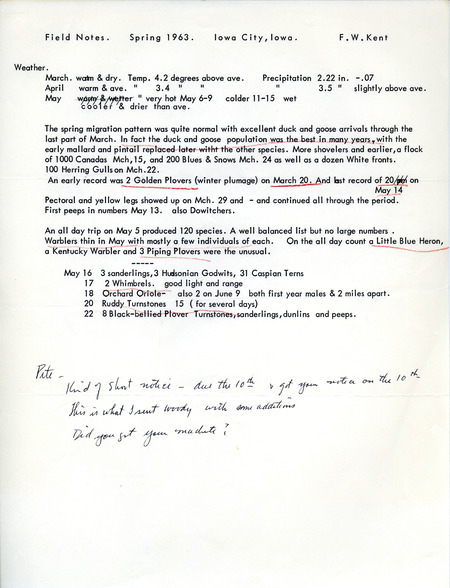 Field Notes. Spring 1963. Iowa City, Iowa. F.W.Kent
Weather.
March. warm & dry. Temp. 4.2 degrees above ave. Precipitation 2.22 in. -.07
April warm & ave. " 3.4 " " " 3.5 " slightly above ave.
May warm & wetter " very hot May 6-9 colder 11-15 wet
cooler & drier than ave.
The spring migration pattern was quite normal with excellent duck and goose arrivals through the
last part of March. In fact the duck and goose population was the best in many years, with the
early mallard and pintail replaced later witht the other species. More shovelers and earlier, a flock
of 1000 Canadas Mch,15, and 200 Blues & Snows Mch. 24 as well as a dozen White fronts.
100 Herring Gulls on Mch.22.
An early record was 2 Golden Plovers (winter plumage) on March 20. And last record of 20 on
May 14
Pectoral and yellow legs showed up on Mch. 29 and - and continued all through the period.
First peeps in numbers May 13. also Dowitchers.
An all day trip on May 5 produced 120 species. A well balanced list but no large numbers .
Warblers thin in May with mostly a few individuals of each. On the all day count a Little Blue Heron,
a Kentucky Warbler and 3 Piping Plovers were the unusual.
-----
May 16 3 sanderlings,3 Hudsonian Godwits, 31 Caspian Terns
17 2 Whimbrels. good light and range
18 Orchard Oriole- also 2 on June 9 both first year males & 2 miles apart.
20 Ruddy Turnstones 15 ( for several days)
22 8 Black-bellied Plover Turnstones,sanderlings,dunlins and peeps.
Pete -
Kind of short notice - due the 10th & got your notice on the 10th
This is what I sent Woody with some additions
Did you get your machete?